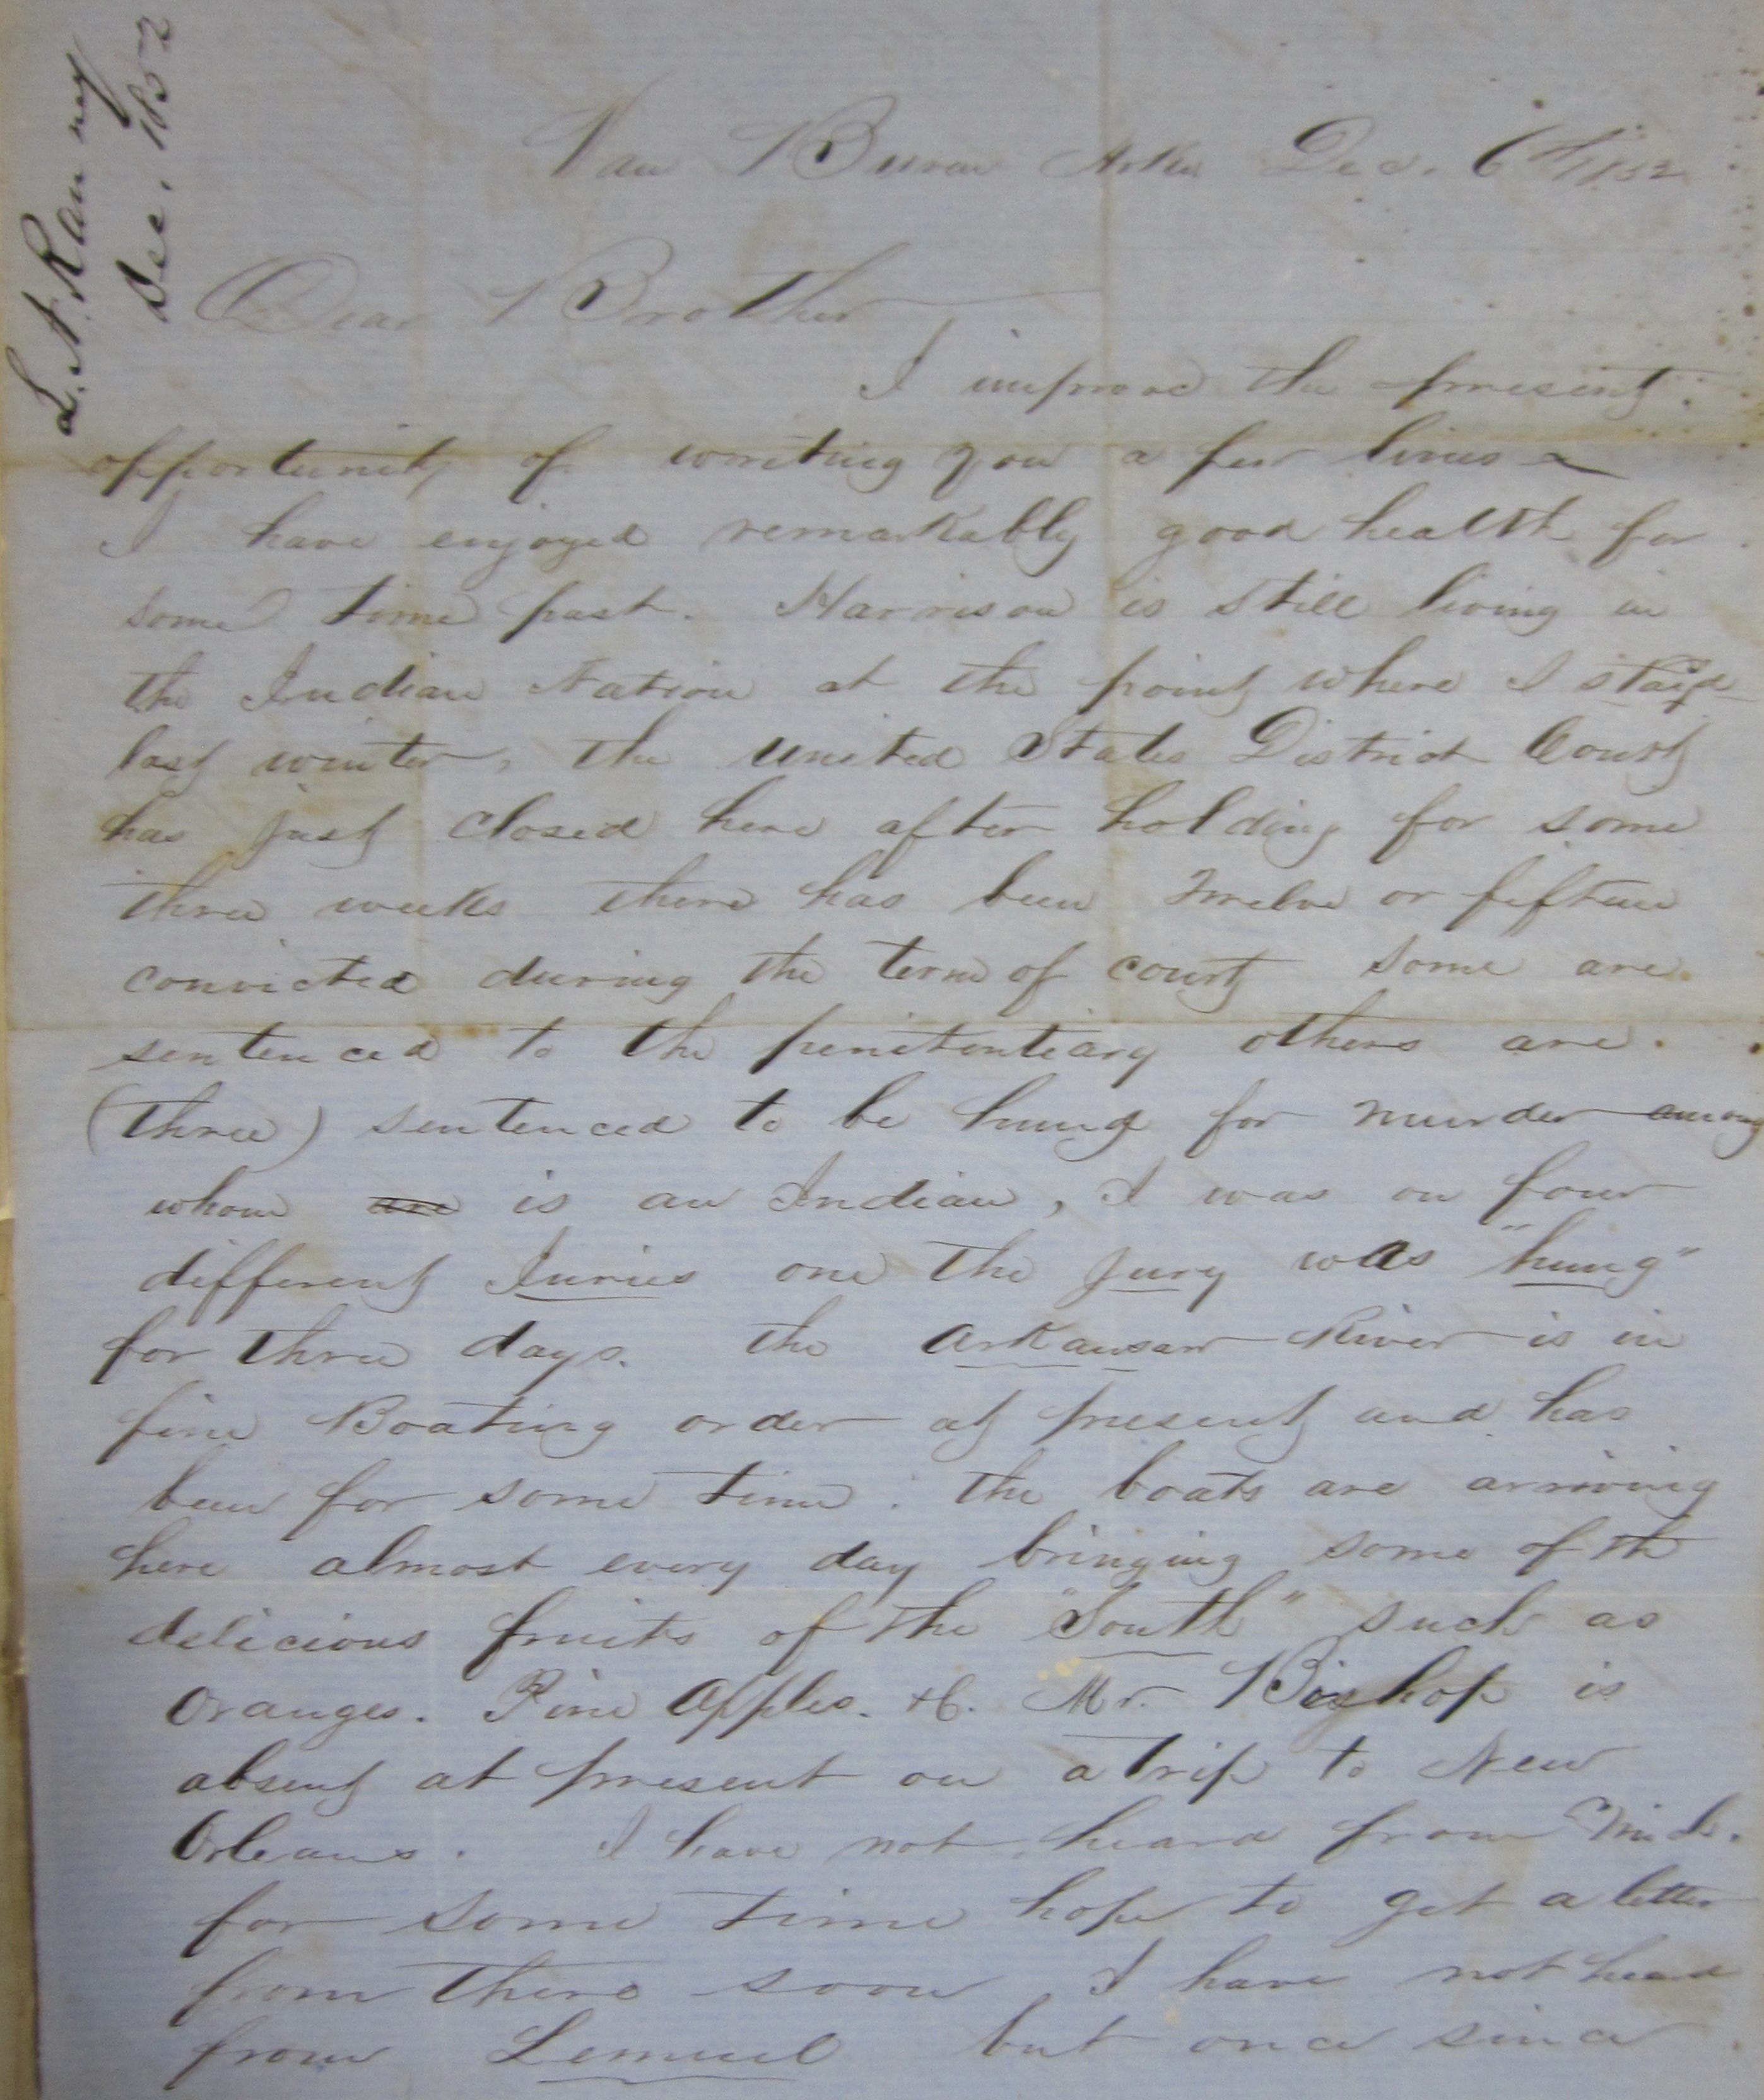 L. A. Ranney
Dec. 1852
Van Buren Arks Dec. 6th 1852
Dear Brother
I improve the present
opportunity of writing you a few lines
I have enjoyed remarkably good health for
some time past. Harrison is still living in
the Indian Nation at the point where I staid
last winter, the United States District Court
has just closed here after holding for some
three weeks there has been Twelve or fifteen
convicted during the term of court some are
sentenced to the penitentiary others are.
(three) sentenced to be hung for murder among
whom are is an Indian, I was on four
different Juries one the jury was "hung"
for three days. the Arkansas River is in
fine Boating order at present and has
been for some time. the boats are arriving
here almost every day bringing some of th
delicious fruits of the "South" such as
Oranges. Pine Apples. &c. Mr. Bishop is
absent at present on a trip to New
Orleans. I have not heard from Mich.
for some time hope to get a letter
from there soon I have not heard
from Lemuel but once since